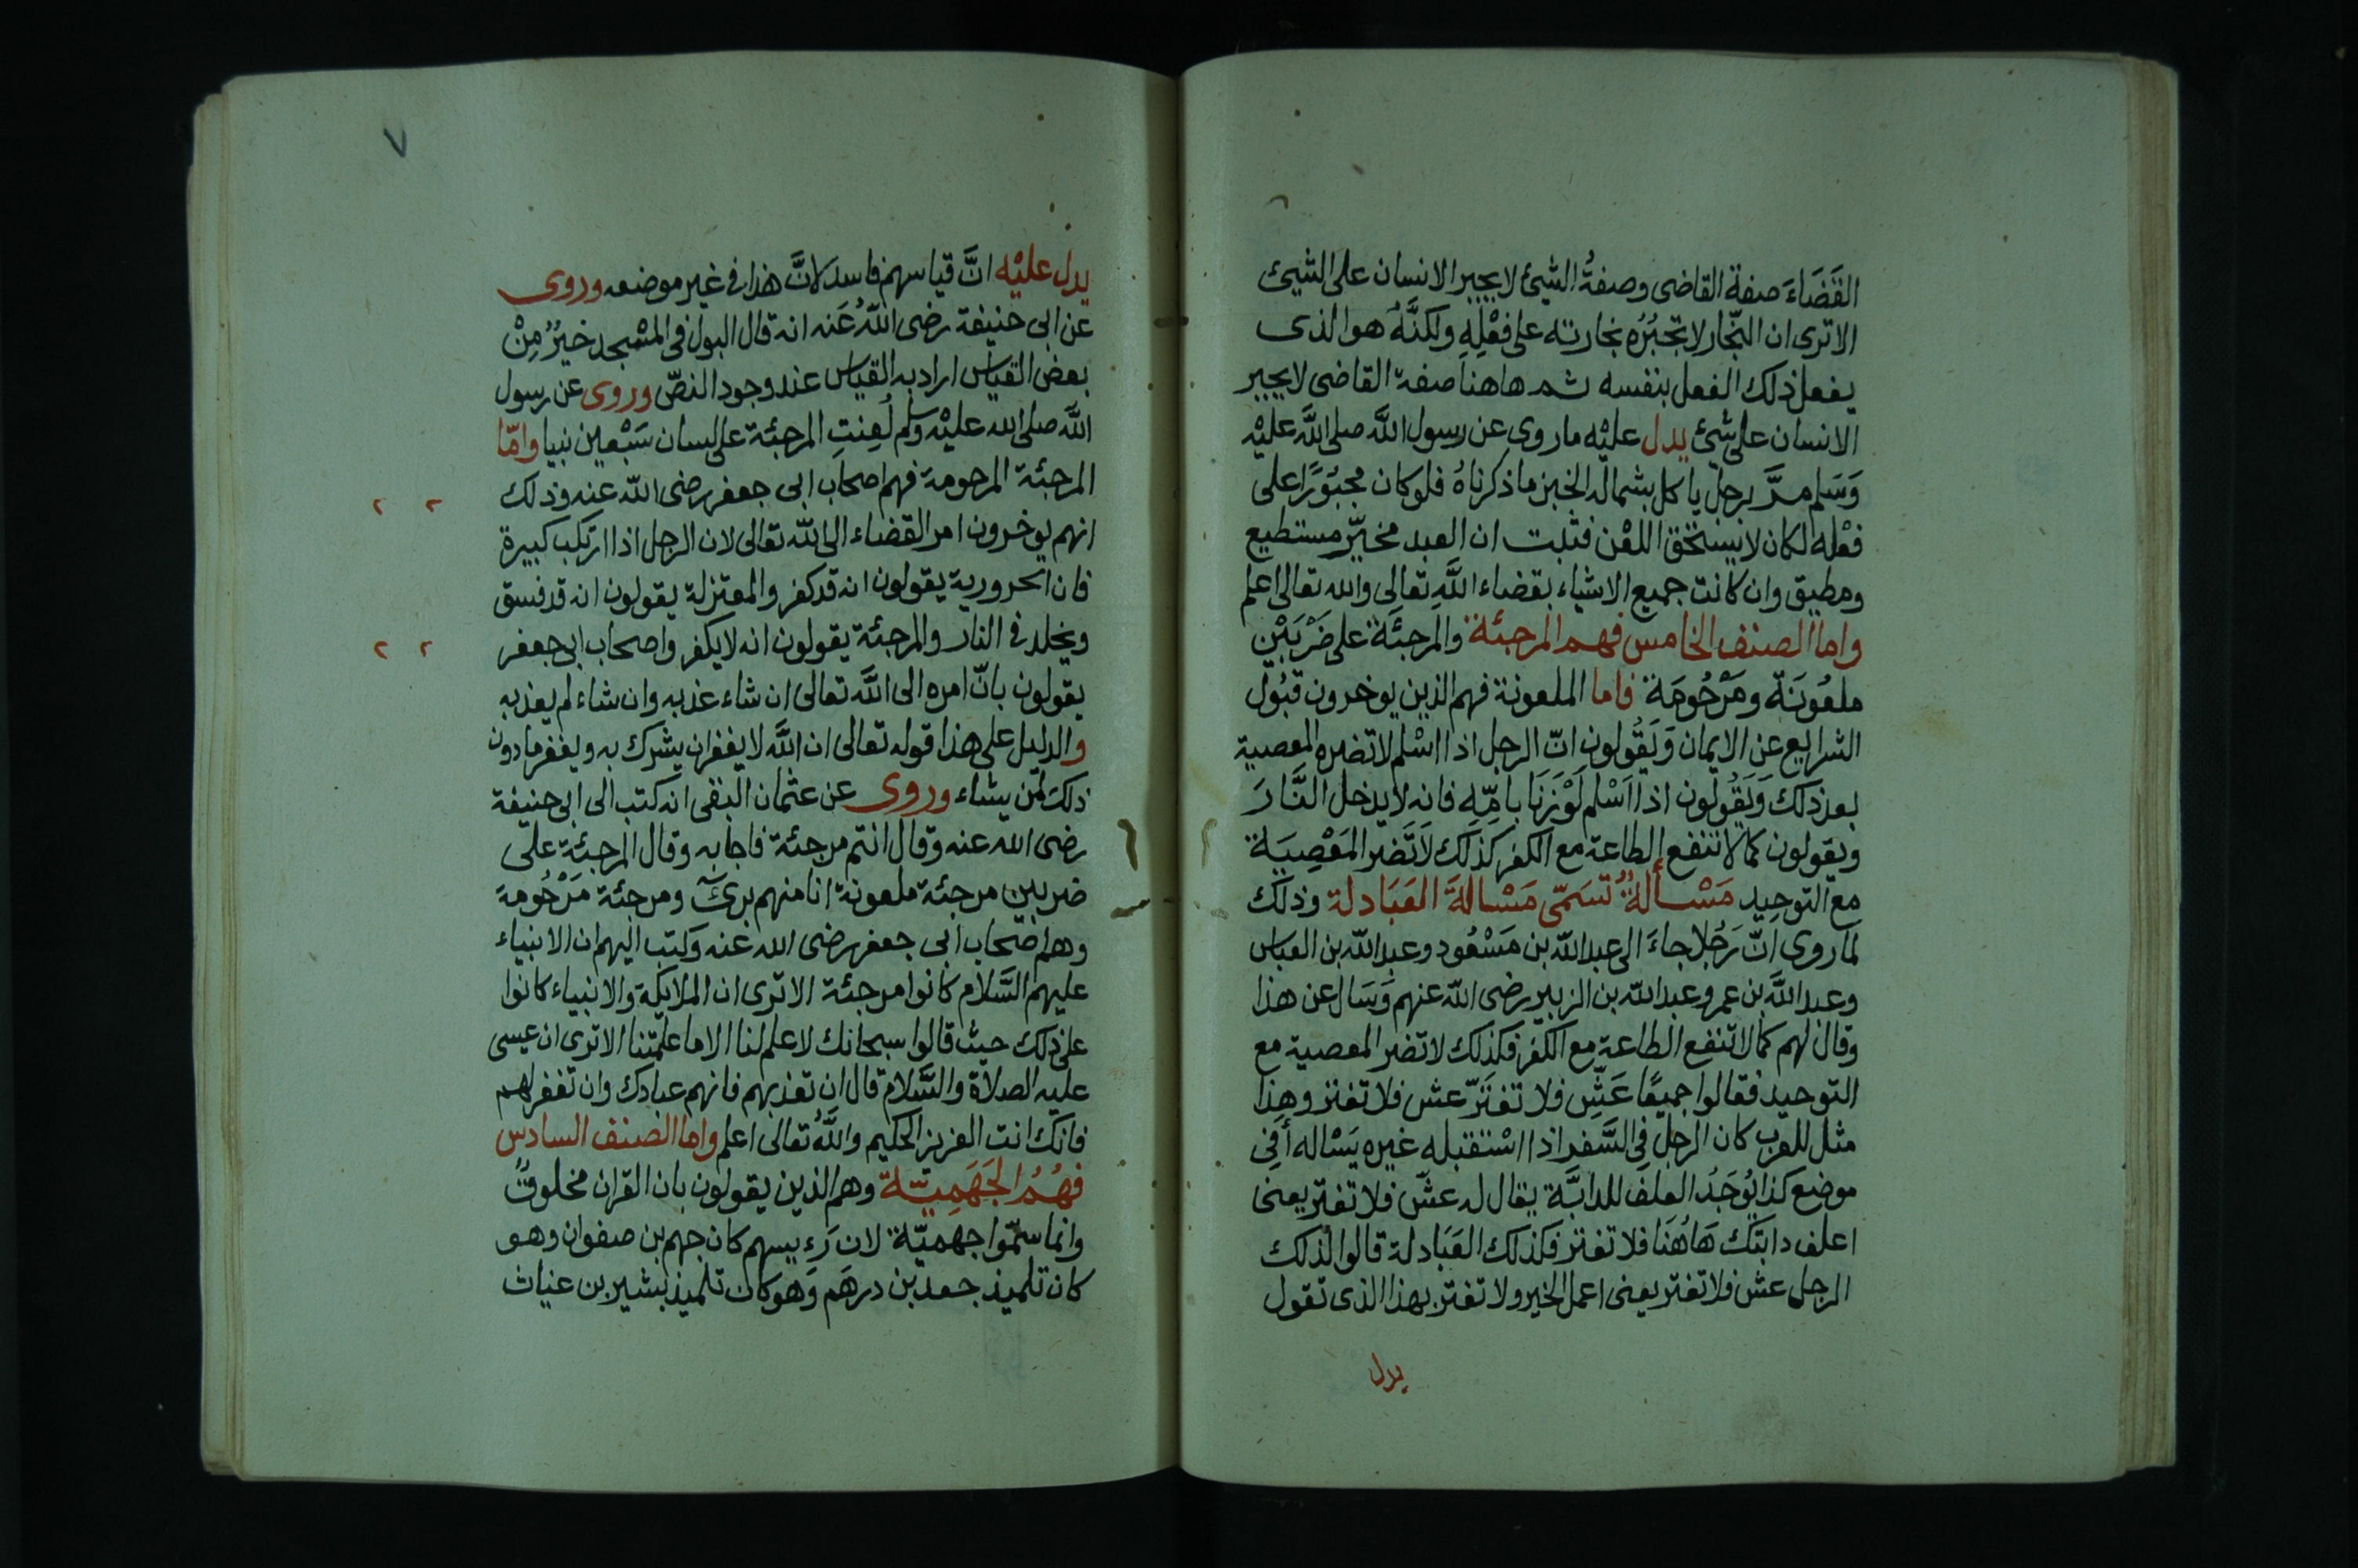 القَضَاءَ صفة القاضى وصفةُ الشيئ لا يجبر الانسان على الشيئ
الا ترى ان النجّار لا تجْبُرُه نجارته على فعْلِهِ ولكنَّهُ هو الذى
يفعل ذلك الفعل بنفسه ثم هاهنا صفة القاضى لا يجبر
الانسان على شئ يدل عليْه ما روى عن رسول اللَّه صلى اللَّه عليْه
وَسَلم مرَّ برجل ياكل بشماله الخبز ما ذكرناهُ فلو كان مجبُورًا على
فعْله لكان لا يستحق اللعْن فثبت ان العبد مخيّر مستطيع
ومطيق وان كانت جميع الاشياء بقضاء اللَّهِ تعَالى والله تعالى اعلم
واما الصنف الخامس فهم المرجئة والمرجئَة على ضَرْبَيْن
ملعُونَة ومَرْحُومَة فاما الملعونة فهم الذين يوخرون قبُول
الشرايع عن الايمان وَيَقُولون انّ الرجل اذا اسْلم لا تضره المعصية
بعد ذلك وَيَقُولون اذا اَسْلم لَوْ زَنَا بامِّهِ فانه لا يدخل النَّارَ
ويقولون كما لا تنفع الطاعة مع الكفر كذلك لَا تَضر المَعْصِيَة
مع التوحِيد مَسْألةٌ تسَمّى مَسْالةَ العَبَادلة وذلك
لما روى انّ رَجُلا جاءَ الى عبد اللّه بن مَسْعُود وعبد اللّه بن العباس
وعبد اللَّه بن عمر وعبد اللّه بن الزبير رضى اللّه عنهم وَسَال عن هذا
وقال لهم كما لا تنفع الطاعة مع الكفر فكذلك لا تضر المعصية مع
التوحيد فقالوا جميعًا عَشِّ فلا تغتَرّ عش فلا تغتر وهذا
مثل للعرب كان الرجل فِى السَّفر اذا اسْتقبله غيره يَسْاله أفِى
موضع كذا يُوجَدُ العلف للدابَّة يقال له عشّ فلا تغتر يعنى
اعلف دابتك هَاهُنَا فلا تغتر فكذلك العَبَادلة قالوا لذلك
الرجل عش فلا تغتر يعنى اعمل الخير ولا تغتر بهذا الذى تقول
يدل
٧
يدل عليْه انَّ قياسهم فاسد لانَّ هذا فى غير موضعه وروى
عن ابى حنيفة رضى اللّهُ عَنه انه قال البول فى المسْجد خيرٌ مِنْ
بعض القياس اراد به القياس عند وجود النصّ وروى عن رسول
اللَّه صلى الله عليْه وسلم لُعِنتِ المرجئة على لسان سَبْعين نبيا وامّا
المرجئة المرحومة فهم اصحاب ابى جعفر رضى اللّه عنه وذلك
انهم يوخرون امر القضاء الى اللّه تعالى لان الرجل اذا ارتكب كبيرة
فان الحرورية يقولون انه قد كفر والمعتزلة يقولون انه قد فسق
ويخلد فى النار والمرجئة يقولون انه لا يكفر واصحاب ابى جعفر
يقولون بانّ امره الى اللَّه تعالى ان شاء عذبه وان شاء لم يعذبه
والدليل على هذا قوله تعالى ان اللَّه لا يغفر ان يشرك به ويغفر ما دون
ذلك لمن يشاء وروى عن عثمان البتى انه كتب الى ابى حنيفة
رضى الله عنه وقال انتم مرجئة فاجابه وقال المرجئة على
ضربين مرجئة ملعونة انا منهم برئ ومرجئة مَرْحُومة
وهم اصْحاب ابى جعفر رضى الله عنه وكتب اليهم ان الانبياء
عليهم السَّلام كانوا مرجئة الا ترى ان الملايكة والانبياء كانوا
على ذلك حيث قالوا سبحانك لا علم لنا الا ما علمتنا الا ترى ان عيسى
عليه الصلاة والسَّلام قال ان تعذبهم فانهم عبادك وان تغفر لهم
فانك انت العزيز الحكيم واللَّهُ تعالى اعلم واما الصنف السادس
فهُمُ الجَهَمِيّة وهم الذين يقولون بان القران مخلوقٌ
وانما سمّوا جهميّة لان رَءيسهم كان جهم بن صفوان وهو
كان تلميذ جعد بن درهَم وَهو كان تلميذ بشير بن غياث